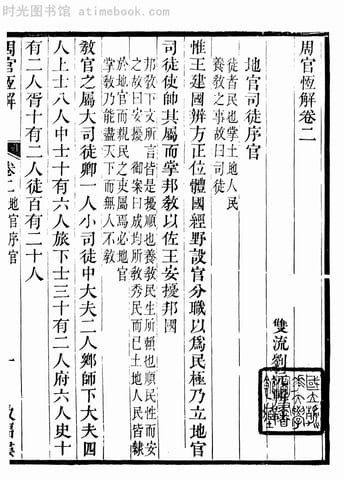 时光图书馆 atimebook.com
周官恆解卷二
雙流劉
地官司徒序官
徒者民也掌土地人民
養教之事故曰司徒
惟王建國辨方正位體國經野設官分職以爲民極乃立地官
司徒使帥其屬而掌邦教以佐王安擾邦國
邦教下文所言皆是擾順也養教民生所頼也順民性而安
之故曰安擾 御案曰成均所教秀民而已土地人民皆隸
於地官而親民之吏屬焉必地官
掌教乃能盡天下而無人不教
教官之屬大司徒卿一人小司徒中大夫二人鄉師下大夫四
人上士八人中士十有六人旅下士三十有二人府六人史十
有二人胥十有二人徒百有二十人
周官恆解
卷二 地官序官
一